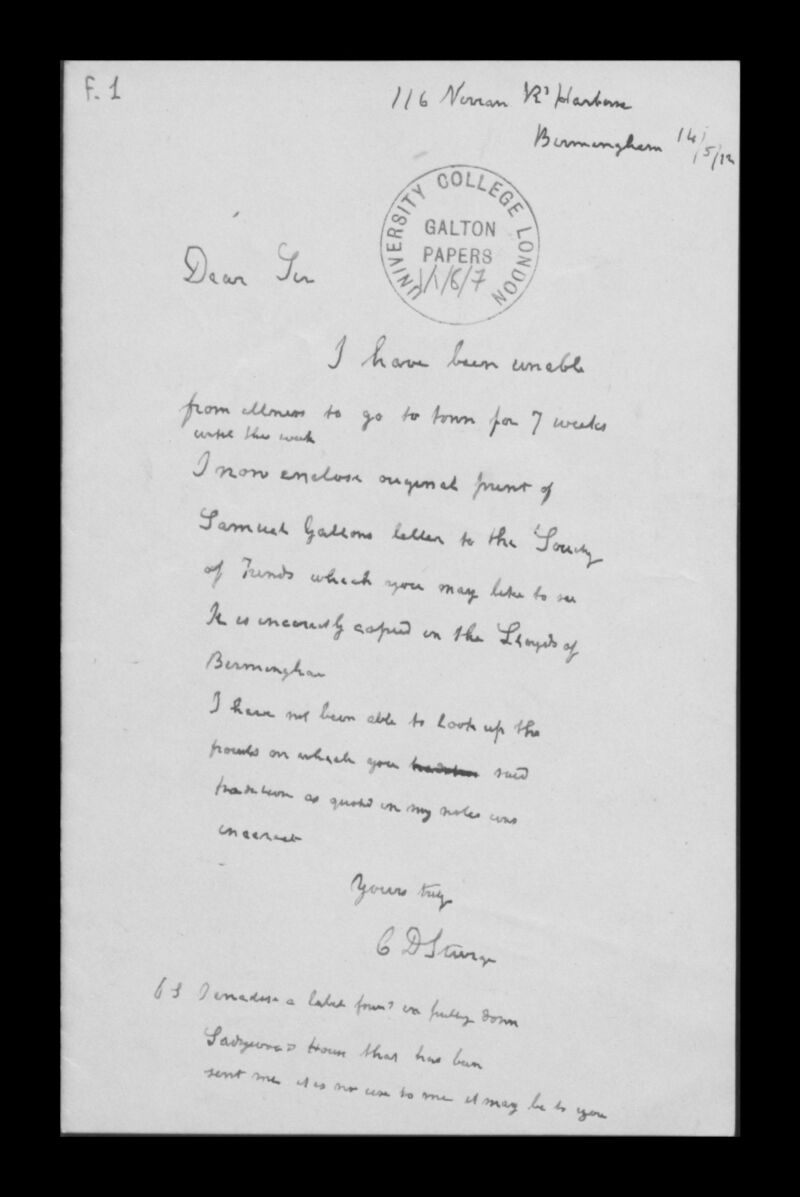 F. 1
116 Vivian Rd Harborne
Birmingham 14/5/12
UNIVERSITY COLLEGE LONDON
GALTON
PAPERS
1/1/6/7
Dear Sir
I have been unable
from illness to go to town for 7 weeks
until this week
I now enclose original print of
Samuel Galtons letter to the Society
of Friends which you may like to see
It is incorrectly copied in the Lloyds of
Birmingham
I have not been able to look up the
points on which you tradition said
tradition as quoted in my notes was
incorrect
Yours truly
C D Sturge
P S I enclose a label found in pulling down
Ladywood House that has been
sent me it is no use to me it may be to you